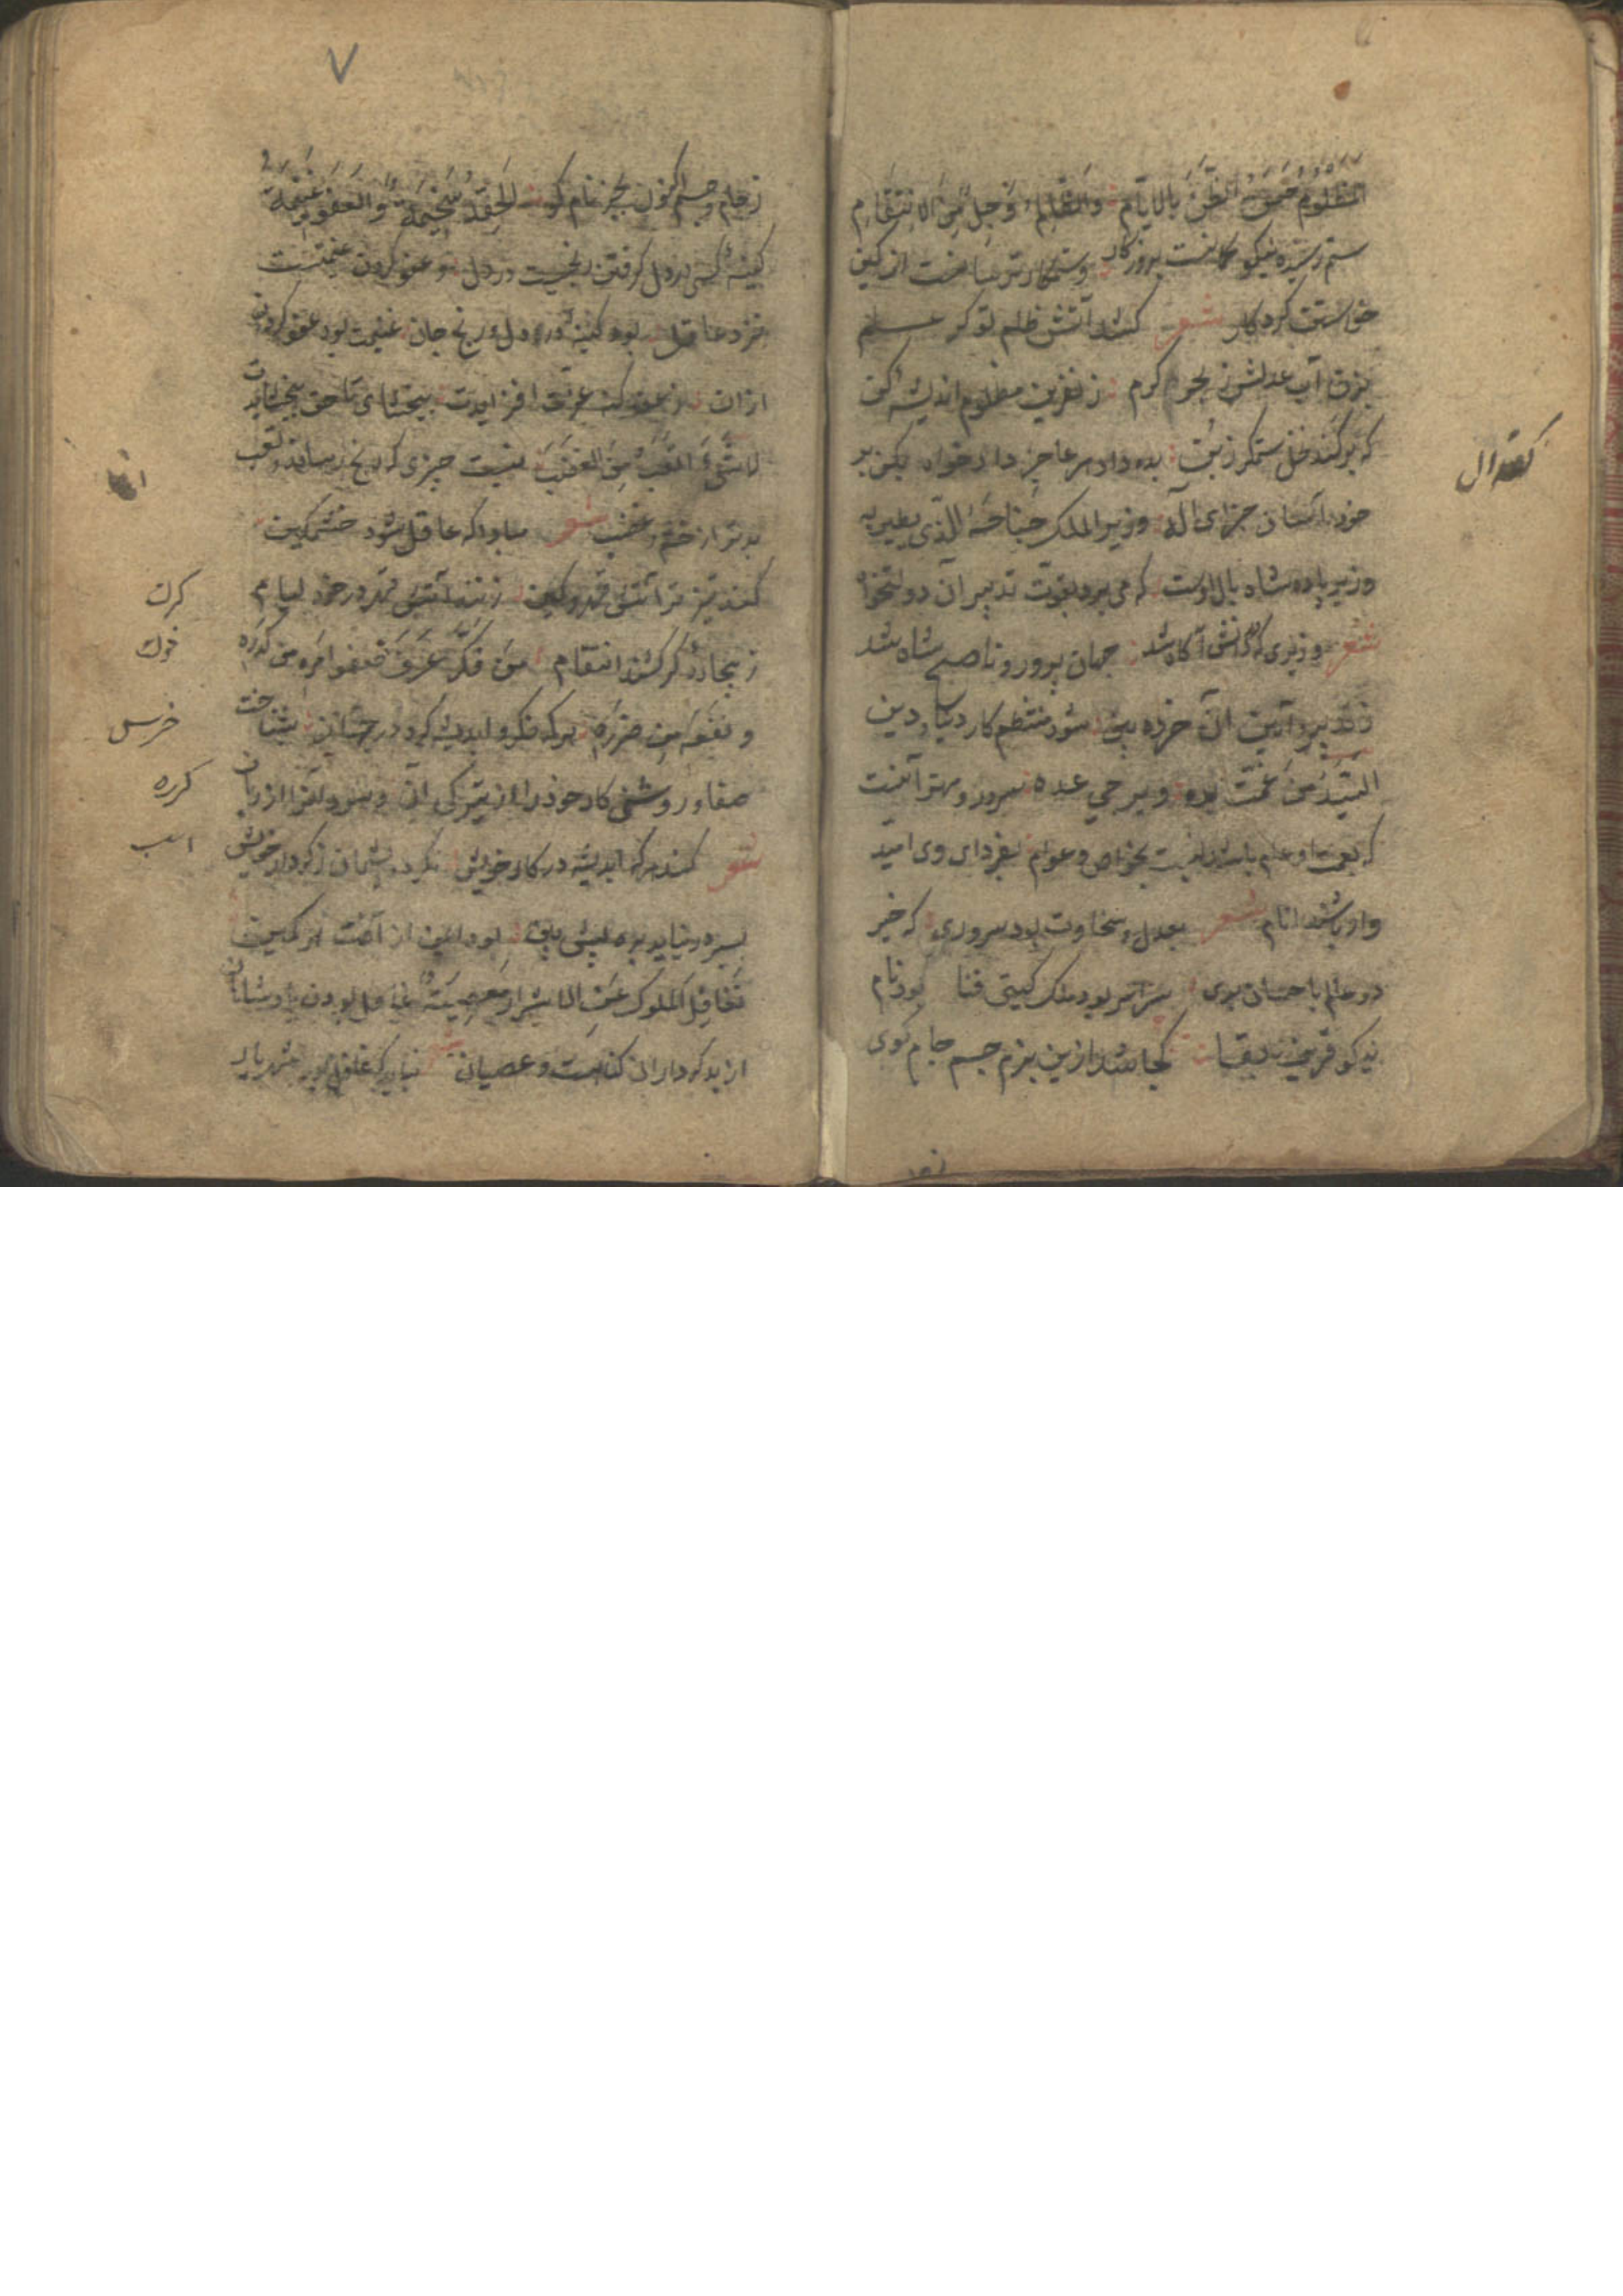 المظلوم حسن الظن بالایام والظالم وجل من الانتقام
ستم رسیده نیکو کمانست بروزکار وستمکار ترسانست از کین
خواستن کردکار شعر کشد آتش ظلم تو کر علم
بزن آب عدلش ز بحر کرم ز نفرین مظلوم اندیشه کن
که برکند نخل ستمکر ز بن بده داد هر عاجز دادخواه
خود جزای اله وزیر الملک جناحه الذی یطیر به
وزیر پادشاه بال اوست که می پرد بقوت تدبیر آن دولتخواه
شعر وزیری که دانش آکاه شد جهان پرور و ناصح شاه شد
ز تدبیر و آیین آن خرده بین شود منتظم کار دنیا و دین
السید من عمت یده ویرجی غده سرور و مهتر آنست
که نعمت او عام باشد بخواص وعوام بفردای وی امید
وار باشد انام شعر بعدل و سخاوت بود سروری که خیر
دو عالم باحسان بری سراسر بود ملک کیتی فنا بود نام
نیکو قرین بقا کجا شد ازین بزم جم جام کوی
کفتال
٧
ز جام و جم اکنون بجز نام کو الحقد سخیمة والعفو غنیمة
کینه کسی در دل کرفتن رنجیست در دل وعفو کردن غنیمتست
نزد عاقل بود کینه در دل رنج جان غنیمت بود عفو کردن
ازان عزت افزایدت ببخشای تا حق ببخشایدت
لا شیء اتعب من الغضب نیست چیزی که رنج رساند وتعب
بدتر از خشم و غضب شعر مبادا که عاقل شود خشمکین
کند تیزتر آتش قهر و کین زند آتش قهر در خود لیام
ز بیچاره کر کشد انتقام من فکر عرف صفو امره من کدره
و نفعه من ضره هر که فکر و اندیشه کرد در جهان شناخت
صفا و روشنی کار خود را از تیرکی آن وسود آنرا از زیان
شعر کند هر که اندیشه در کار خویش نکردد پشیمان ز کردار خویش
بسر در نیاید بره پیش بین بود ایمن از آفت از کمین
تغافل الملوک عن الاشرار معصیة غافل بودن پادشاهان
از بدکرداران کناهست وعصیان نباید که غافل بود شهریار
کرک
خوک
خرس
کرره
اسب